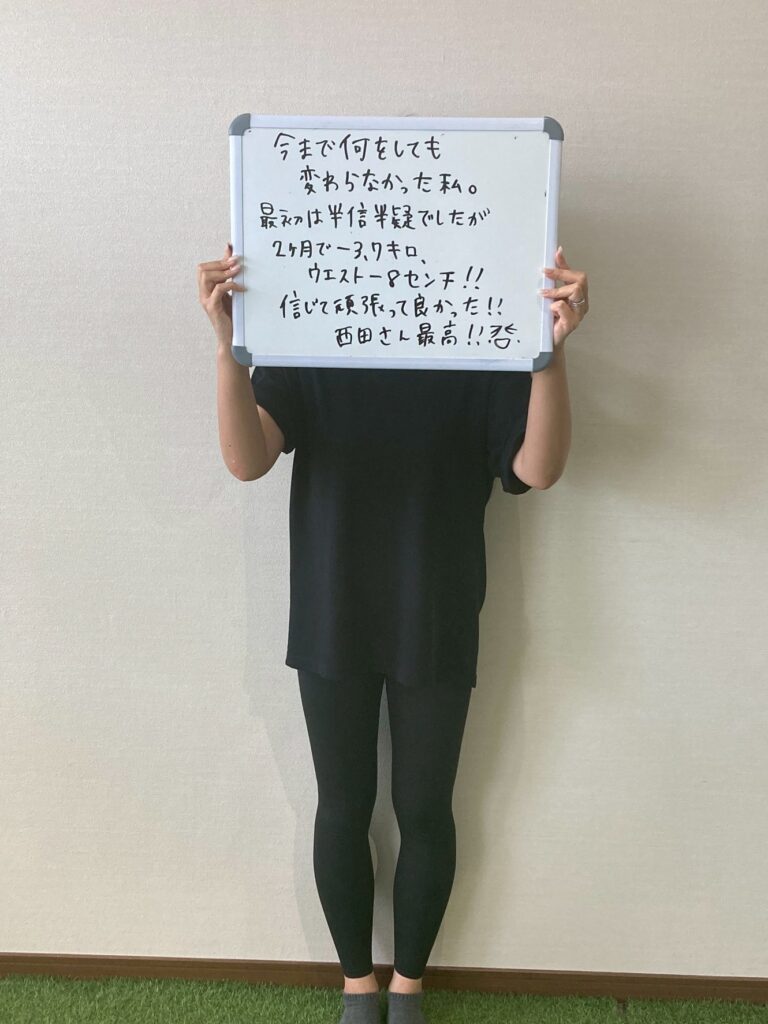 今まで何をしても
変わらなかった私。
最初は半信半疑でしたが
2ヶ月で−3.7キロ、
ウエスト−8センチ!!
信じて頑張って良かった!!
西田さん最高!!